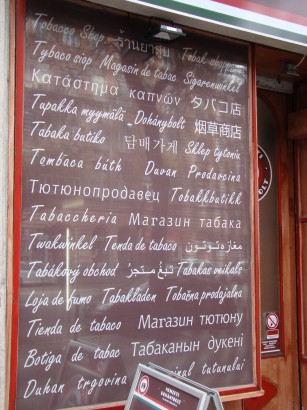 Tobacco Shop ร้านยาสูบ Tobak
Tybaco siop Magasin de tabac Sigarenwinkel
Κατάστημα καπνών タバコ店
Tupakka myymälä Dohánybolt 烟草商店
Tabaka butiko 담배가게 Sklep tytoniu
Tombaca búth Duvan Prodavcina
Тютюнопродавец Tobakkbutikk
Tabaccheria Магазин табака
Twakwinkel Tenda de tabaco مغازه توتون
Tabákový obchod تبغ متجر Tabakas veikals
Loja de fumo Tobakladen Tobačna prodajalna
Tienda de tabaco Магазин тютюну
Botiga de tabac Табаканын дукені
Duhan trgovina tutunului
NEMZETI
DOHÁNYBOLT